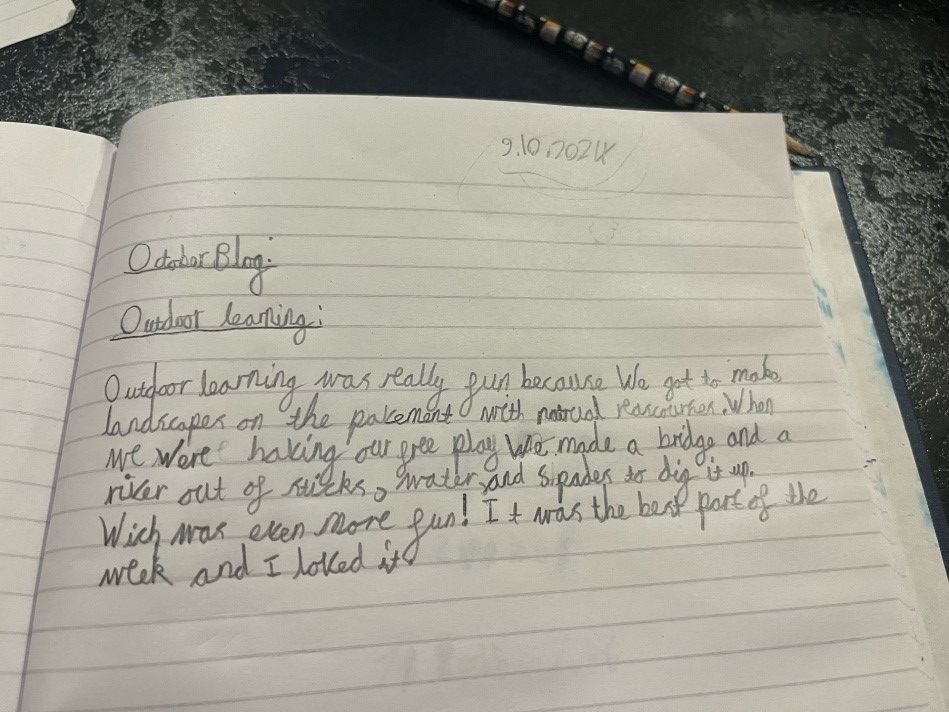 9.10.2024
October Blog:
Outdoor learning:
Outdoor learning was really fun because We got to make
landscapes on the pavement with natrual reascourses. When
we were having our free play We made a bridge and a
river out of sticks, water, and spades to dig it up.
Wich was even more fun! It was the best part of the
week and I loved it.